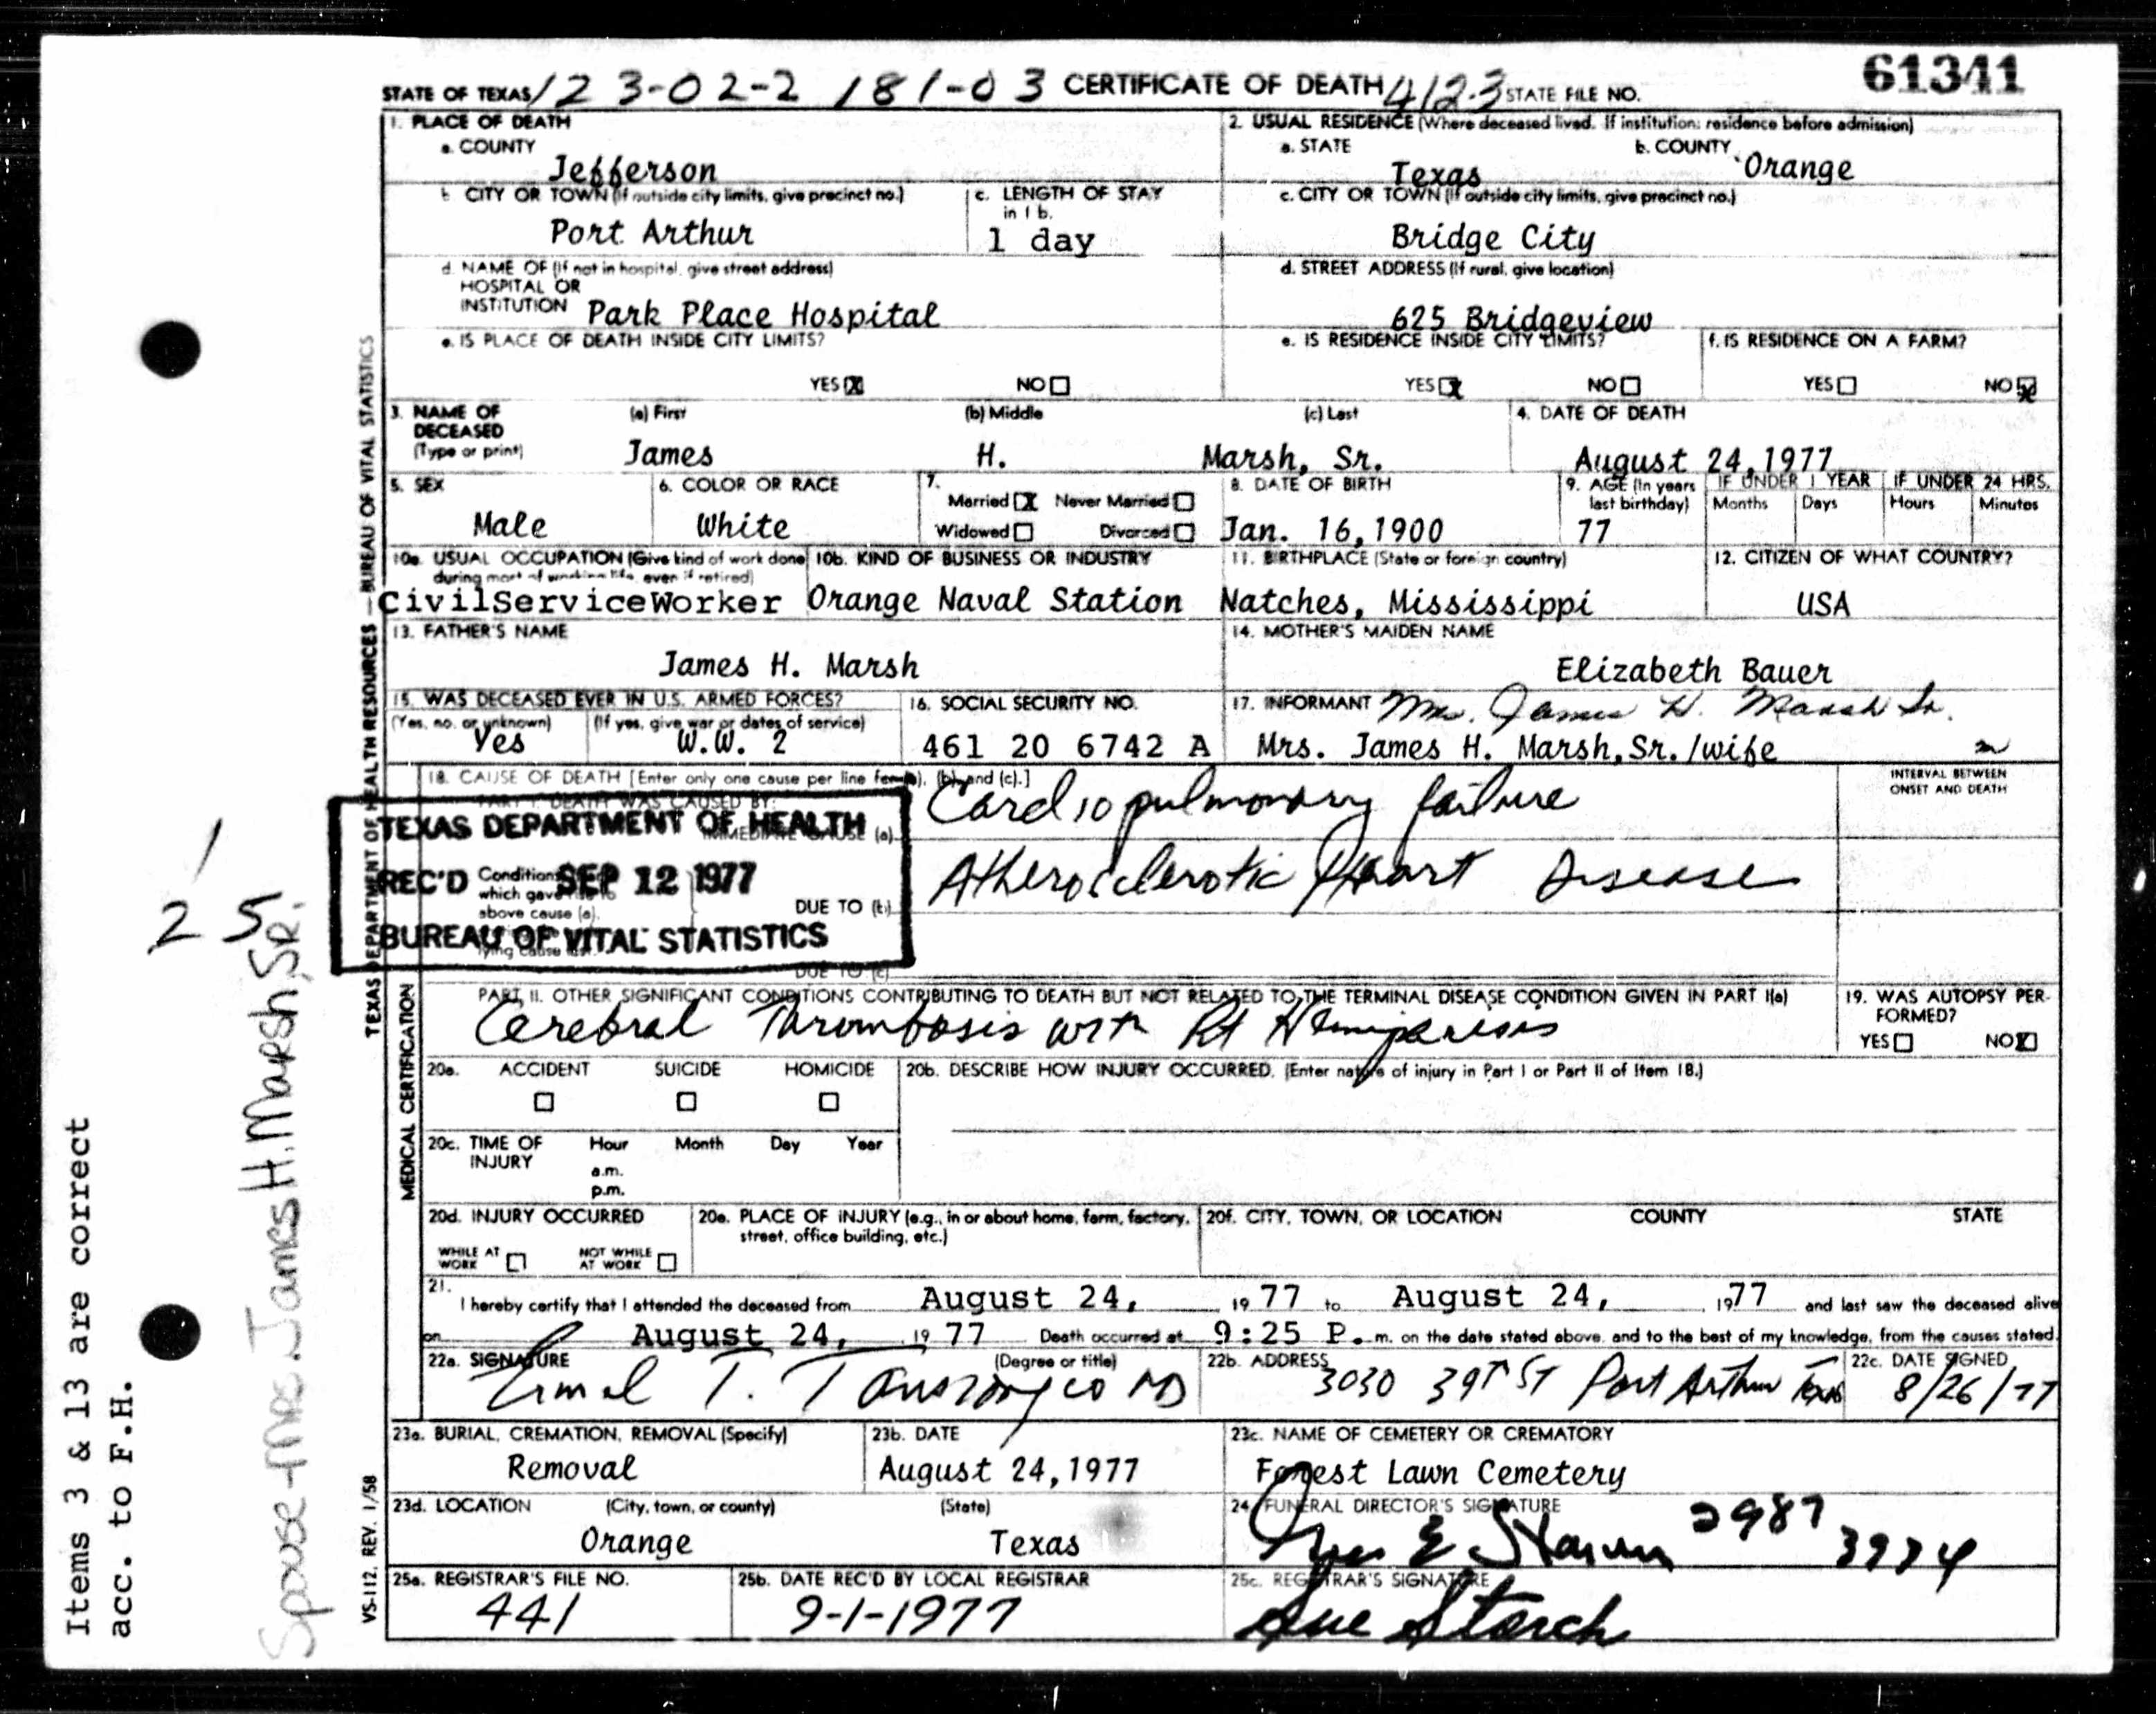 61341
STATE OF TEXAS 123-02-2 181-03 CERTIFICATE OF DEATH 4123 STATE FILE NO.
1. PLACE OF DEATH
a. COUNTY
Jefferson
2. USUAL RESIDENCE (Where deceased lived. If institution: residence before admission)
a. STATE
Texas
b. COUNTY
Orange
b. CITY OR TOWN (If outside city limits, give precinct no.)
Port Arthur
c. LENGTH OF STAY
in 1 b.
1 day
c. CITY OR TOWN (If outside city limits, give precinct no.)
Bridge City
d. NAME OF (If not in hospital, give street address)
HOSPITAL OR
INSTITUTION Park Place Hospital
d. STREET ADDRESS (If rural, give location)
625 Bridgeview
e. IS PLACE OF DEATH INSIDE CITY LIMITS?
YES X NO
e. IS RESIDENCE INSIDE CITY LIMITS?
YES X NO
f. IS RESIDENCE ON A FARM?
YES NO X
3. NAME OF
DECEASED
(Type or print)
(a) First
James
(b) Middle
H.
(c) Last
Marsh, Sr.
4. DATE OF DEATH
August 24,1977
5. SEX
Male
6. COLOR OR RACE
White
7.
Married X Never Married
Widowed Divorced
8. DATE OF BIRTH
Jan. 16,1900
9. AGE (In years
last birthday)
77
IF UNDER 1 YEAR
Months Days
IF UNDER 24 HRS.
Hours Minutes
10a. USUAL OCCUPATION (Give kind of work done
during most of working life, even if retired)
CivilServiceWorker
10b. KIND OF BUSINESS OR INDUSTRY
Orange Naval Station
11. BIRTHPLACE (State or foreign country)
Natches, Mississippi
12. CITIZEN OF WHAT COUNTRY?
USA
13. FATHER'S NAME
James H. Marsh
14. MOTHER'S MAIDEN NAME
Elizabeth Bauer
15. WAS DECEASED EVER IN U.S. ARMED FORCES?
(Yes, no, or unknown)
Yes
(If yes, give war or dates of service)
W.W. 2
16. SOCIAL SECURITY NO.
461 20 6742 A
17. INFORMANT Mrs. James H. Marsh Sr.
Mrs. James H. Marsh,Sr./wife
18. CAUSE OF DEATH [Enter only one cause per line for (a), (b), and (c).]
INTERVAL BETWEEN
ONSET AND DEATH
PART I. DEATH WAS CAUSED BY:
IMMEDIATE CAUSE (a)
Cardiopulmonary failure
TEXAS DEPARTMENT OF HEALTH
REC'D SEP 12 1977
BUREAU OF VITAL STATISTICS
Conditions
which gave rise to
above cause (a),
lying cause last.
DUE TO (b)
Atherosclerotic Heart Disease
DUE TO (c)
PART II. OTHER SIGNIFICANT CONDITIONS CONTRIBUTING TO DEATH BUT NOT RELATED TO THE TERMINAL DISEASE CONDITION GIVEN IN PART I(a)
Cerebral Thrombosis with Rt Hemiparesis
19. WAS AUTOPSY PER-
FORMED?
YES NO X
20a. ACCIDENT SUICIDE HOMICIDE
20b. DESCRIBE HOW INJURY OCCURRED. (Enter nature of injury in Part I or Part II of Item 18.)
20c. TIME OF
INJURY
Hour Month Day Year
a.m.
p.m.
20d. INJURY OCCURRED
WHILE AT
WORK
NOT WHILE
AT WORK
20e. PLACE OF INJURY (e.g., in or about home, farm, factory,
street, office building, etc.)
20f. CITY, TOWN, OR LOCATION COUNTY STATE
21.
I hereby certify that I attended the deceased from August 24, 19 77 to August 24, 1977 and last saw the deceased alive
on August 24, 19 77 Death occurred at 9:25 P.m. on the date stated above, and to the best of my knowledge, from the causes stated.
22a. SIGNATURE (Degree or title)
T. MD
22b. ADDRESS
3030 39th St Port Arthur Texas
22c. DATE SIGNED
8/26/77
23a. BURIAL, CREMATION, REMOVAL (Specify)
Removal
23b. DATE
August 24,1977
23c. NAME OF CEMETERY OR CREMATORY
Forest Lawn Cemetery
23d. LOCATION (City, town, or county) (State)
Orange Texas
24. FUNERAL DIRECTOR'S SIGNATURE
2987 3974
25a. REGISTRAR'S FILE NO.
441
25b. DATE REC'D BY LOCAL REGISTRAR
9-1-1977
25c. REGISTRAR'S SIGNATURE
Sue Storch
TEXAS DEPARTMENT OF HEALTH RESOURCES — BUREAU OF VITAL STATISTICS
MEDICAL CERTIFICATION
VS-112, REV. 1/58
1
2 5
Spouse-Mrs. James H. Marsh, Sr.
Items 3 & 13 are correct
acc. to F.H.